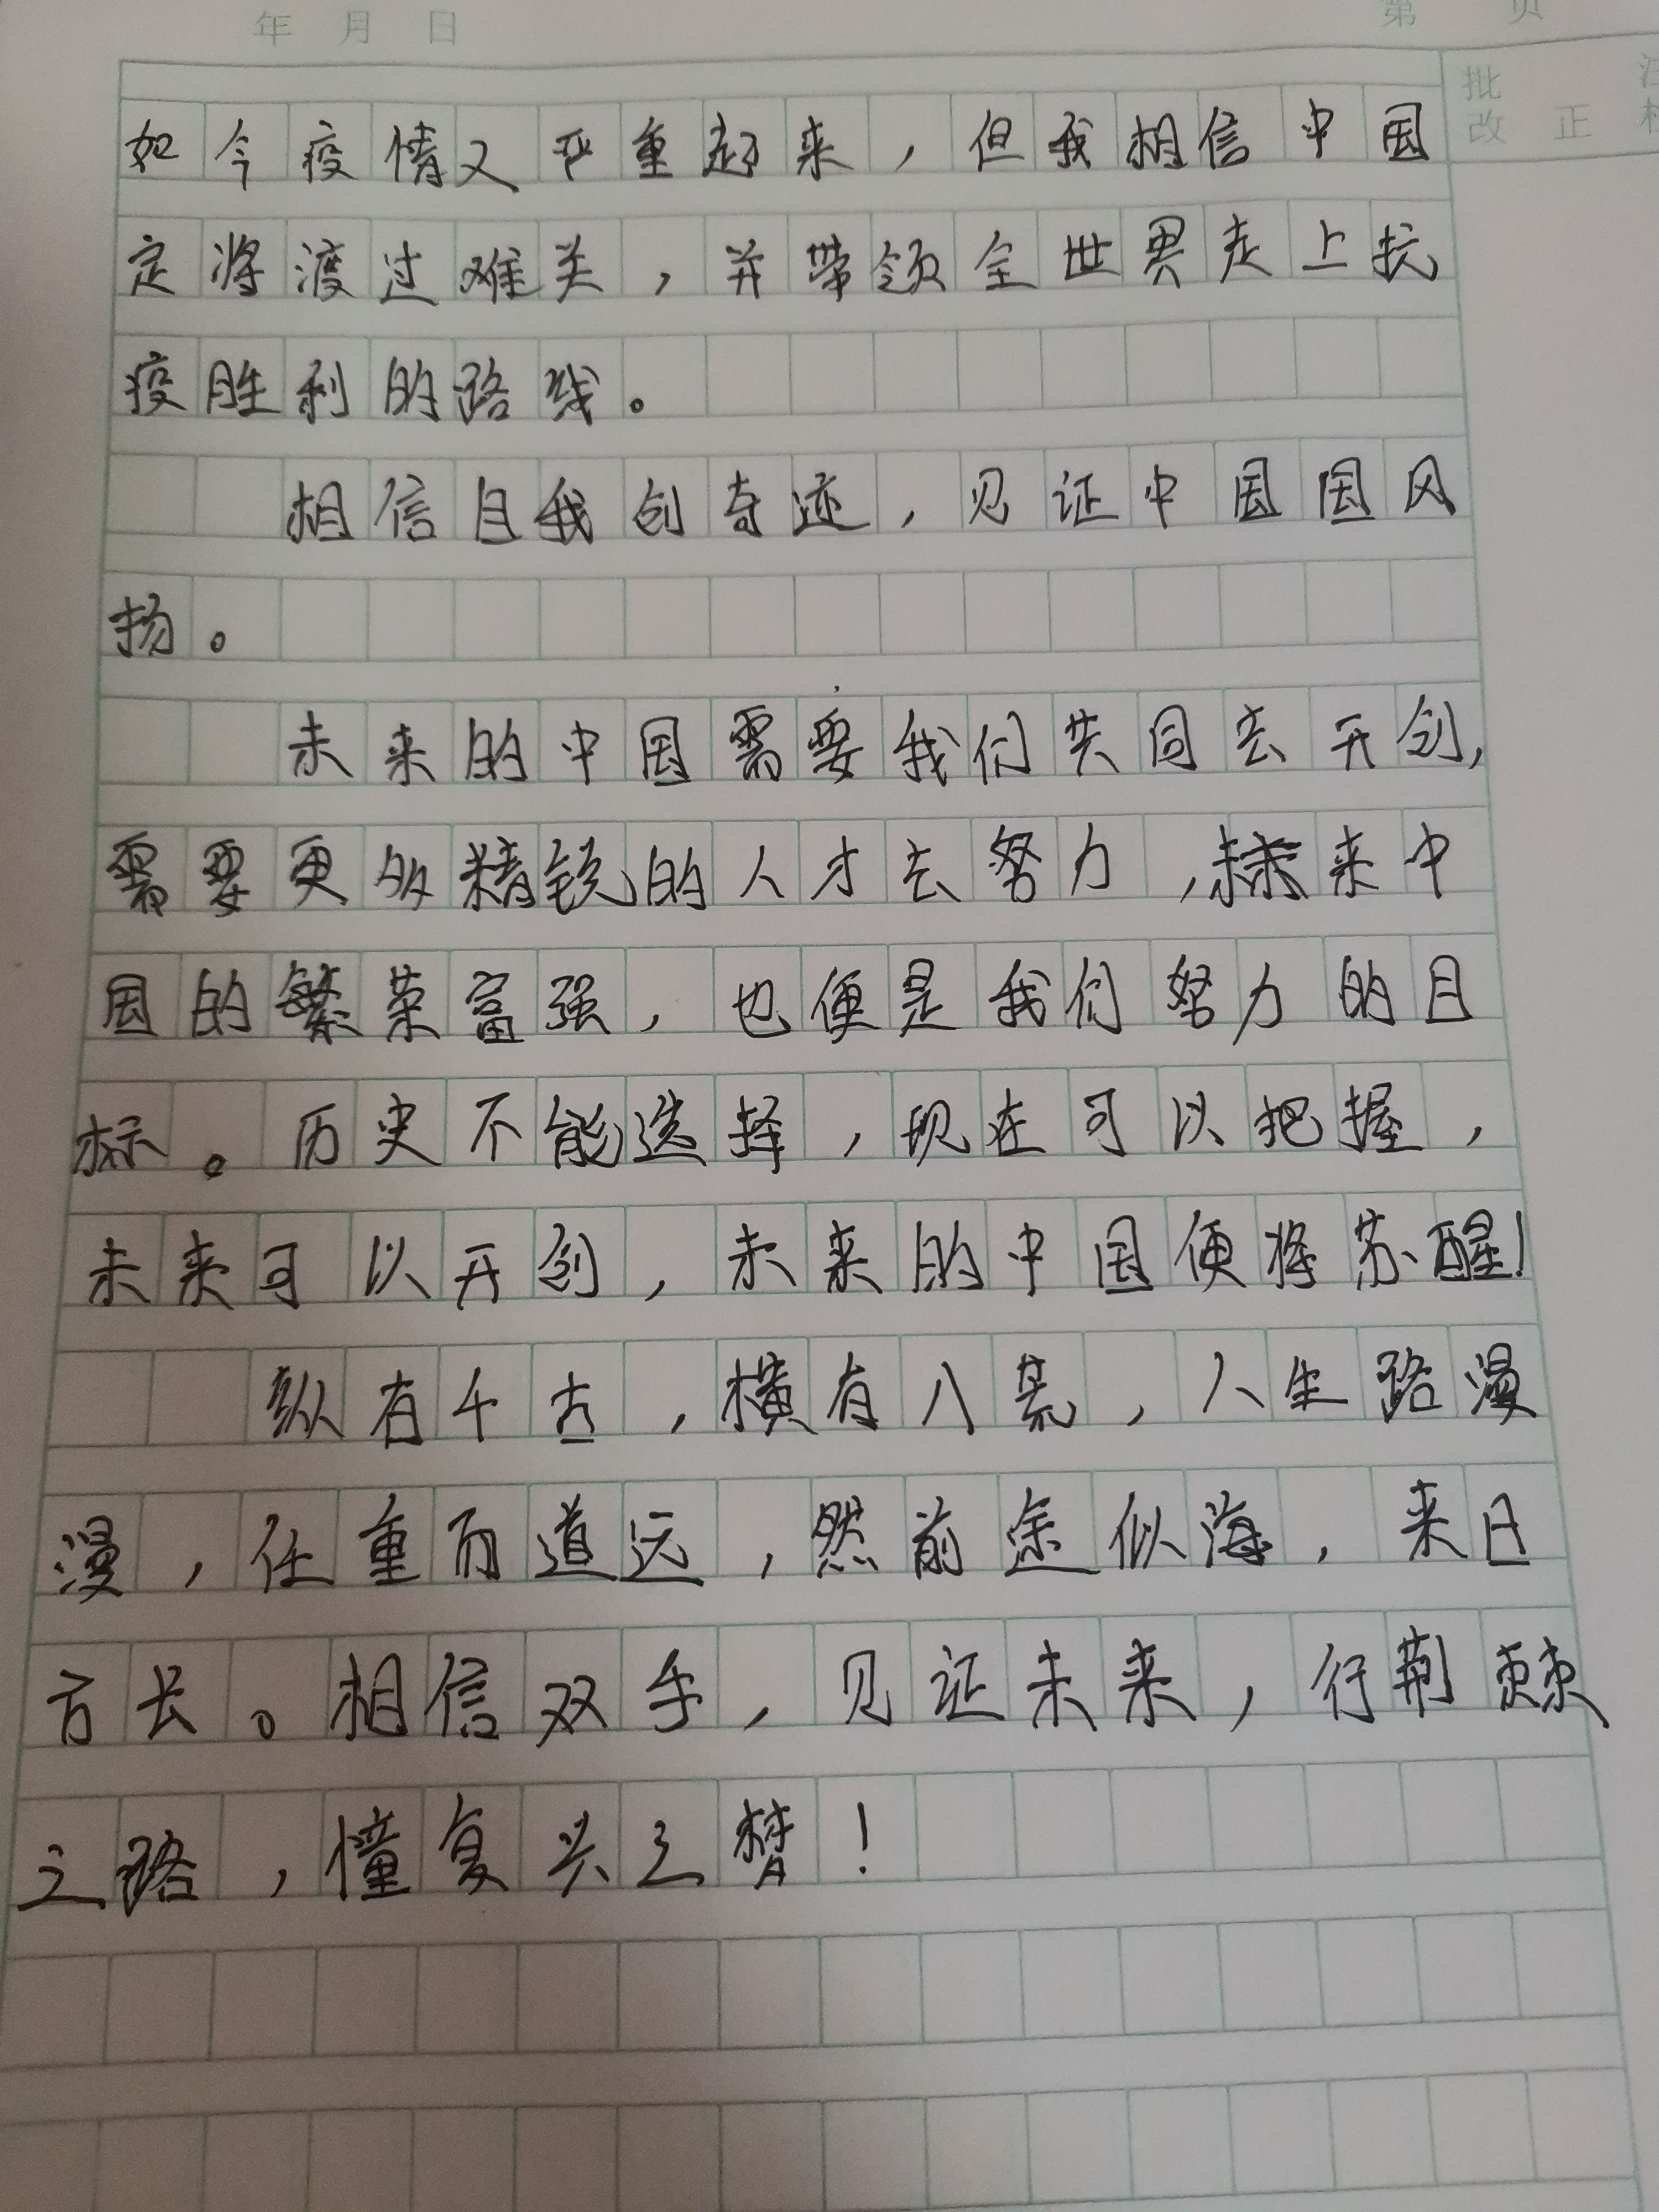 年 月 日
第 页
批 注
改 正
如今疫情又严重起来，但我相信中国
定将渡过难关，并带领全世界走上抗
疫胜利的路线。
相信自我创奇迹，见证中国国风
扬。
未来的中国需要我们共同去开创，
需要更多精锐的人才去努力，未来中
国的繁荣富强，也便是我们努力的目
标。历史不能选择，现在可以把握，
未来可以开创，未来的中国便将苏醒！
纵有千古，横有八荒，人生路漫
漫，任重而道远，然前途似海，来日
方长。相信双手，见证未来，行荆棘
之路，憧复兴之梦！